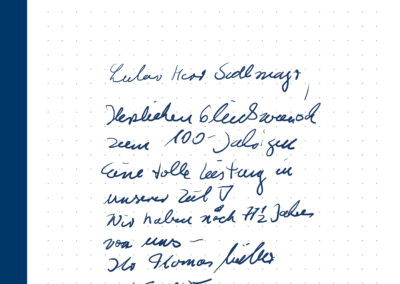 Lieber Herr Sedlmayr,
Herzlichen Glückwunsch
zum 100-Jährigen
Eine tolle Leistung in
unserer Zeit
Wir haben noch 11½ Jahre
vor uns –
Ihr Thomas